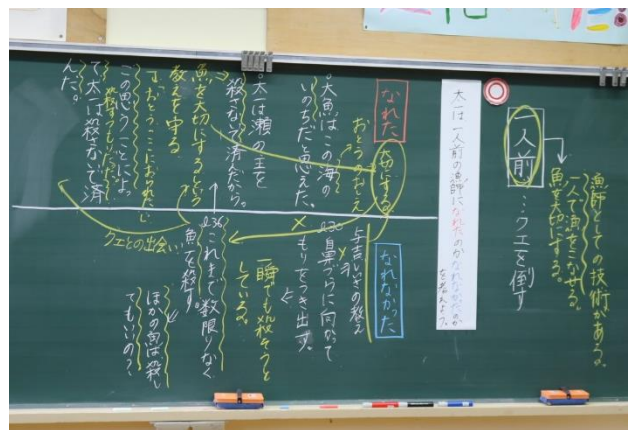 漁師としての技術がある。
一人で魚をこなせる。
魚を大切にする。
一人前
…クエを倒す
太一は一人前の漁師になれたのかなれなかったのか
を考えよう。
なれた
なれなかった
おとうの
大魚はこの海の
いのちだと思えた。
太一は瀬の王を
殺さないで済んだから。
魚を大切にするという
教えを守る。
「おとう、ここにおられたのですか」
この思うことによっ
て太一は殺さないで済
んだ。
与吉じいさの教え
鼻づらに向かって
もりをつき出す。
一瞬でも殺そうと
している。
これまで数限りなく
魚を殺す。
ほかの魚は殺し
てもいいの?
クエとの出会い